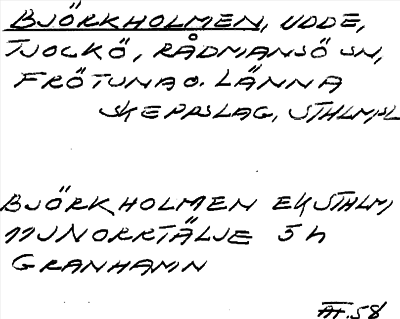 BJÖRKHOLMEN, UDDE,
TJOCKÖ, RÅDMANSÖ SN,
FRÖTUNA O. LÄNNA
SKEPPSLAG, STHLM:SL
BJÖRKHOLMEN EK, STHLM,
11J NORRTÄLJE 5h
GRANHAMN
AT. 58